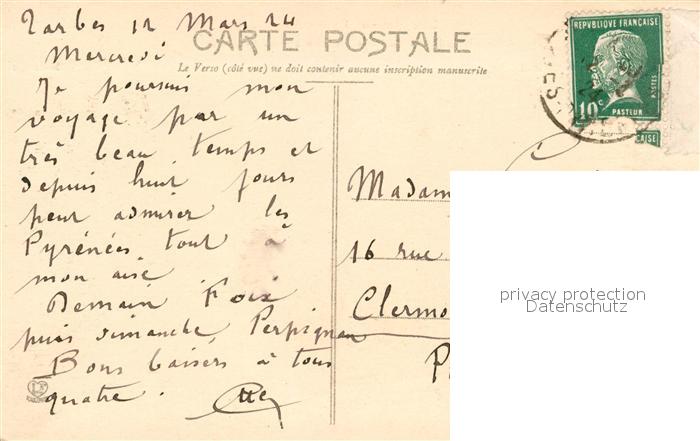 Tarbes 12 Mars 24
Mercredi
CARTE POSTALE
Le Verso (côté vue) ne doit contenir aucune inscription manuscrite
Je poursuis mon
voyage par un
très beau temps et
depuis huit jours
peut admirer les
Pyrénées tout à
mon aise
Demain Foix
puis dimanche Perpignan
Bons baisers à tous
quatre.
REPUBLIQUE FRANÇAISE
10c
POSTES
PASTEUR
Madam
16 rue
Clermo
privacy protection
Datenschutz